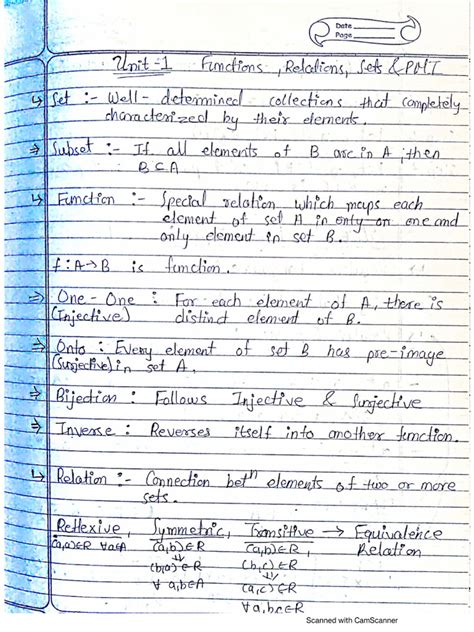 Date
Page
Unit-1 Functions, Relations, Sets & PMI
↳ Set :- Well-determined collections that completely
characterized by their elements.
⇒ Subset :- If all elements of B are in A, then
B ⊂ A
↳ Function :- Special relation which maps each
element of set A in only on one and
only element in set B.
f: A→B is function.
⇒ One-One : For each element of A, there is
(Injective) distinct element of B.
⇒ Onto : Every element of set B has pre-image
(Surjective) in set A.
⇒ Bijection : Follows Injective & Surjective
⇒ Inverse : Reverses itself into another function.
↳ Relation :- Connection betⁿ elements of two or more
sets.
Reflexive, Symmetric, Transitive → Equivalence
(a,a)∈R ∀a∈A (a,b)∈R (a,b)∈R, Relation
⇓ (b,c)∈R
(b,a)∈R ⇓
∀ a,b∈A (a,c)∈R
∀ a,b,c∈R
Scanned with CamScanner